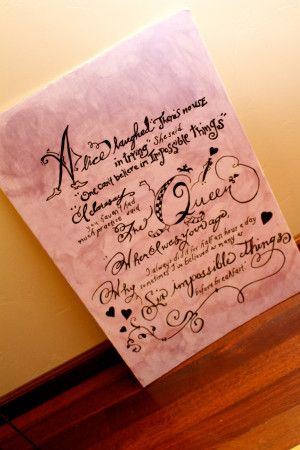 Alice laughed "There's no use
in trying" She said
"One can't believe in Impossible things"
"I daresay
you haven't had
much practice" said
The Queen
"When I was your age,
I always did it for half an hour a day
Why sometimes I've believed as many as
Six impossible things
before breakfast.